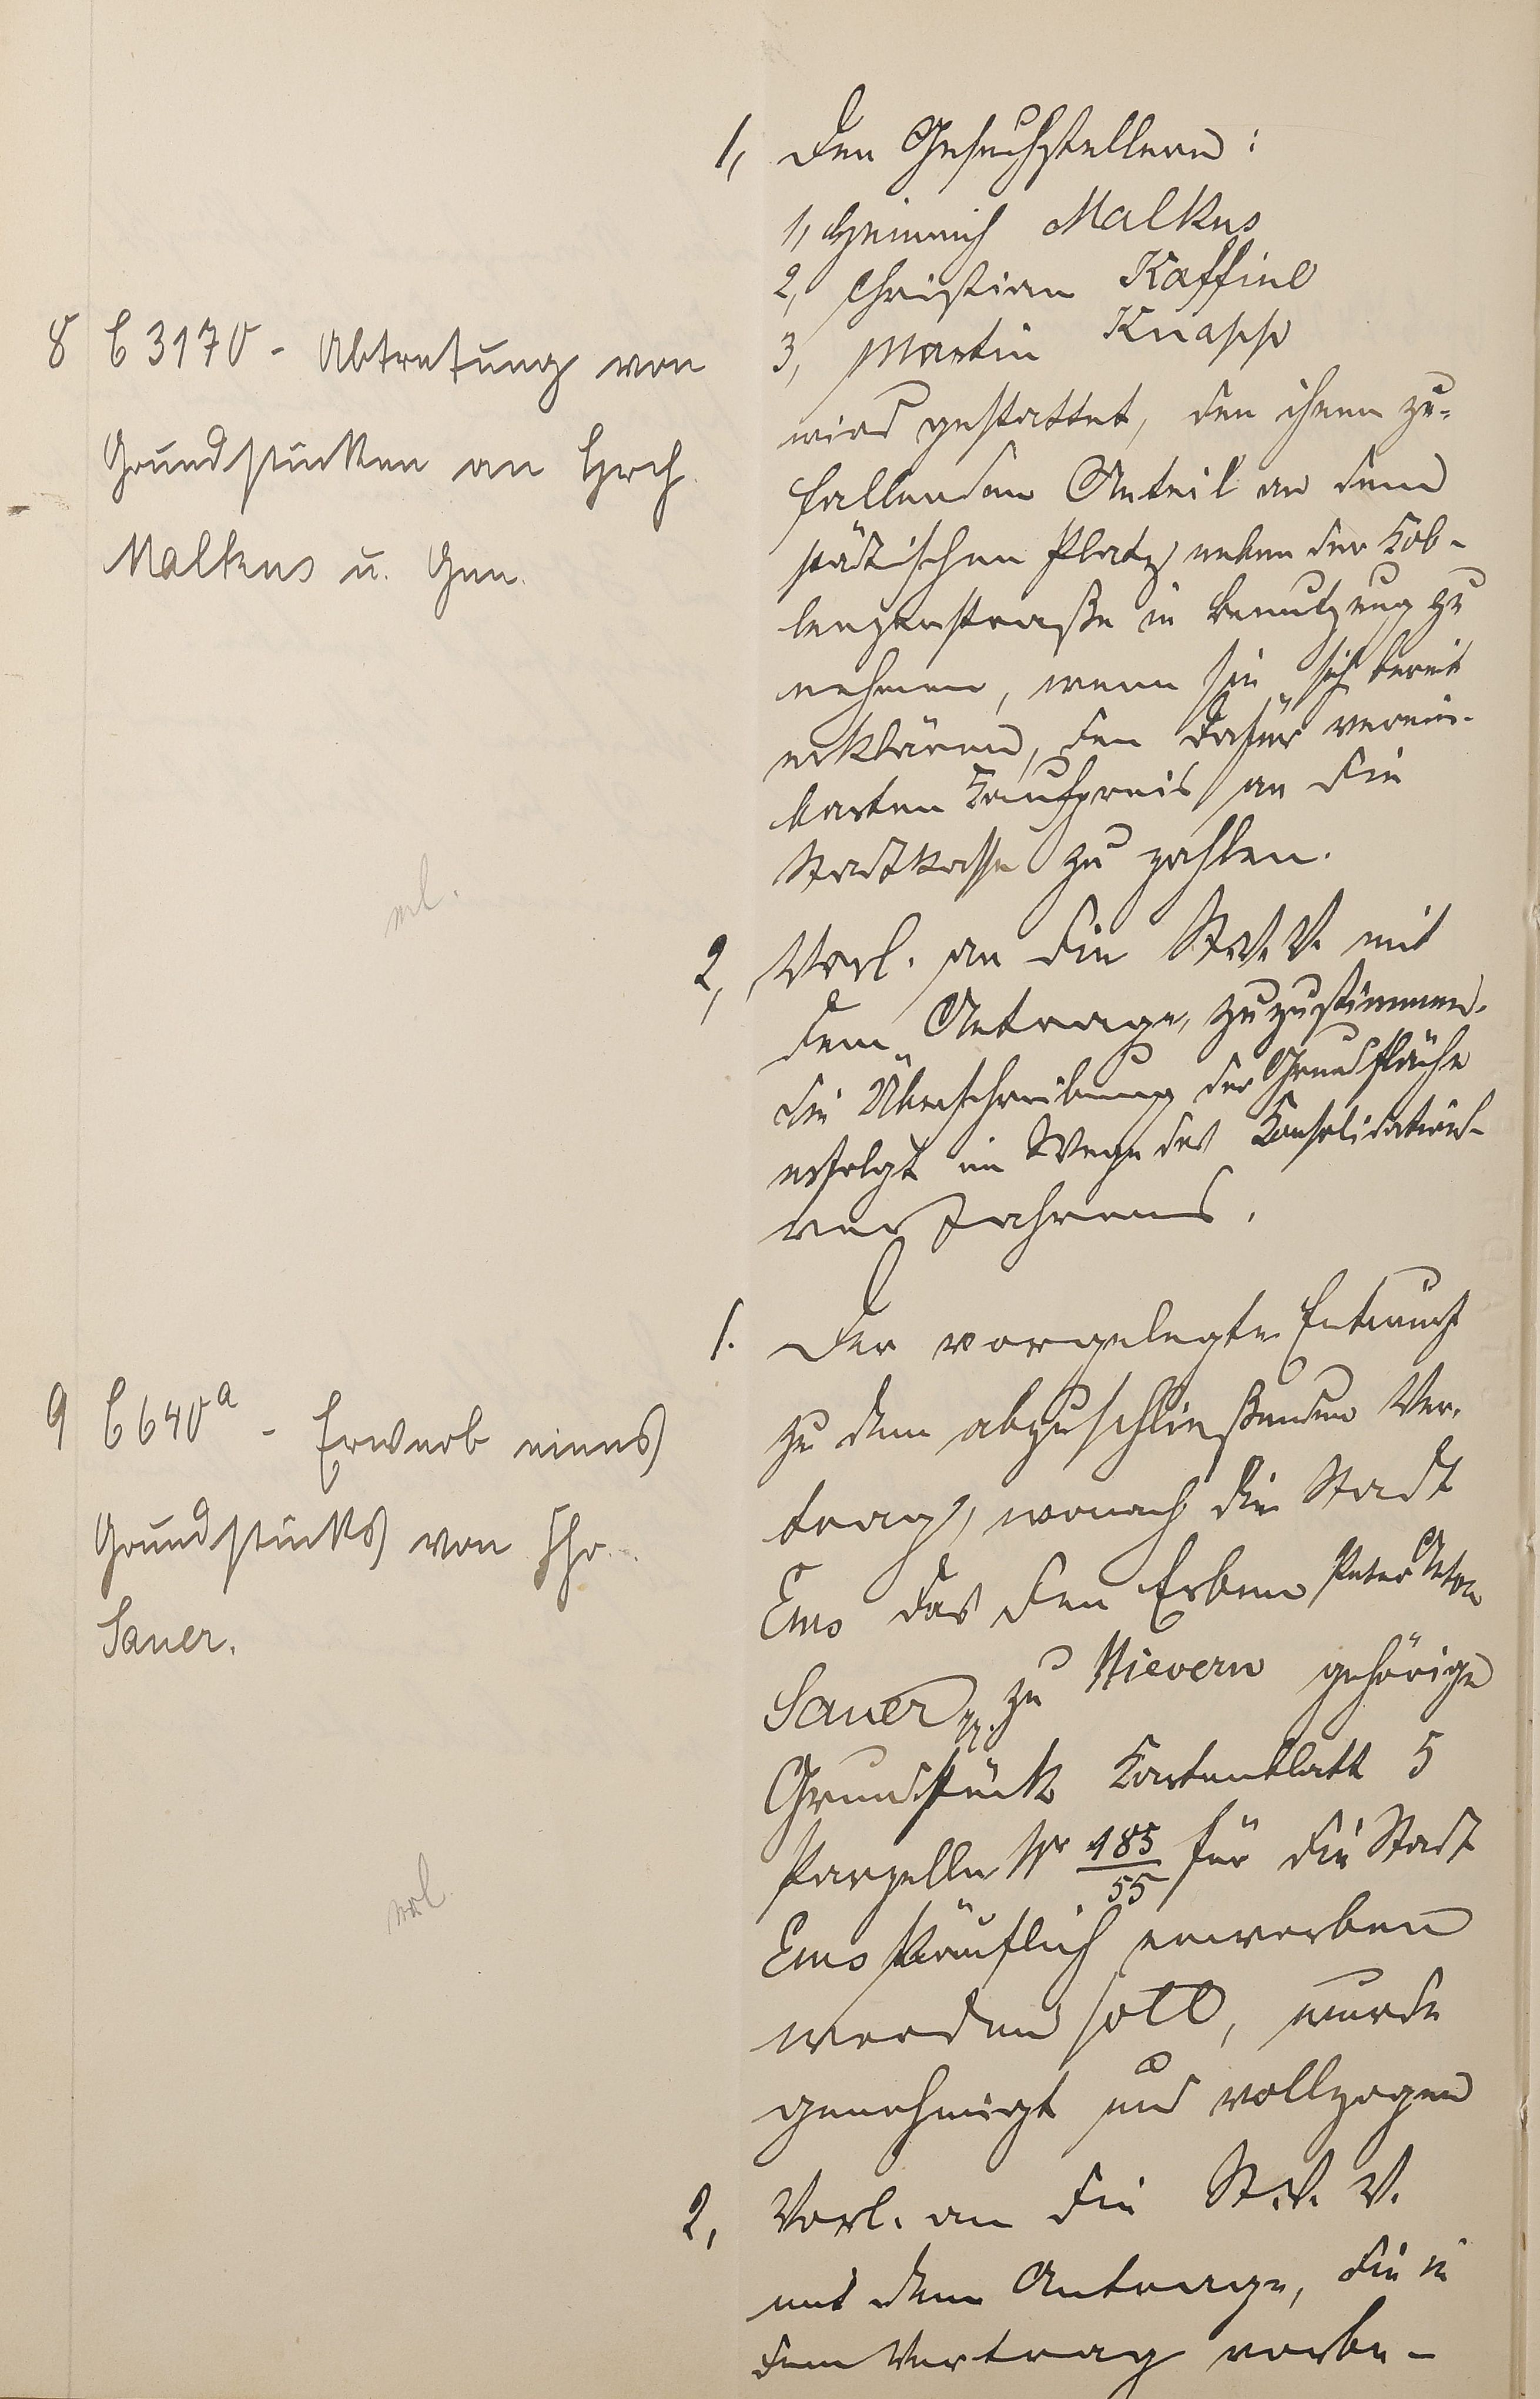 8 C 3170 - Abtretung von
Grundstücken an Hrch.
Malkus u. Gen.
1, Den Gesuchstellern:
1, Heinrich Malkus
2, Christian Kaffine
3, Martin Knapp
wird gestattet, den ihnen zu-
fallenden Anteil an dem
städtischen Platz neben der Kob-
lenzerstraße in Benutzung zu
nehmen, wenn sie sich bereit
erklären, den dafür verein-
barten Kaufpreis an die
Stadtkasse zu zahlen.
2, Vorl. an die St.V.V. mit
dem Antrage, zuzustimmen.
die Überschreibung der Grundfläche
erfolgt im Wege des Konsolidations-
verfahrens.
vorl.
9 C 640a - Erwerb eines
Grundstücks von Chr.
Sauer.
1. Der vorgelegte Entwurf
zu dem abzuschließenden Ver-
trag, wonach die Stadt
Ems das den Erben Peter Anton
Sauer zu Nievern gehörige
Grundstück Kartenblatt 5
Parzelle Nr 185/55 für die Stadt
Ems käuflich erworben
werden soll, wurde
genehmigt und vollzogen
2, Vorl. an die St.V.V.
mit dem Antrage, die in
dem Vertrag vorbe-
vorl.